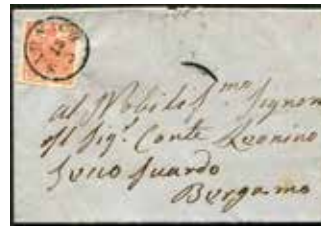 al Nobilis.mo Signor
Il Sig.r Conte Leonino
Secco Suardo
Bergamo